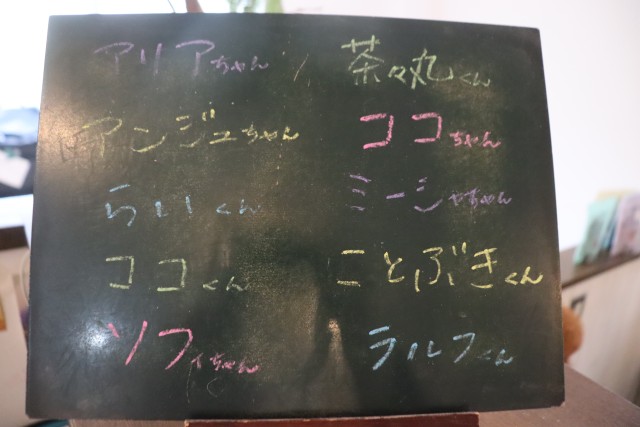 アリアちゃん
茶々丸くん
アンジュちゃん
ココちゃん
らいくん
ミーシャちゃん
ココくん
ことぶきくん
ソフィちゃん
ラルフくん